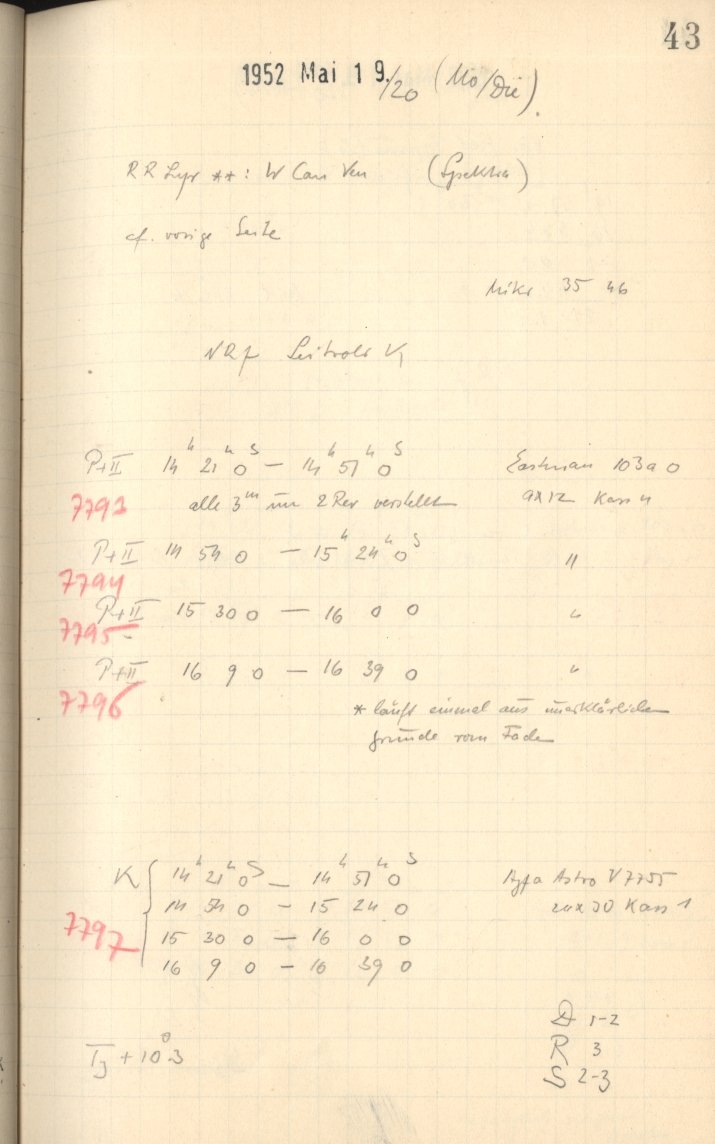 43
1952 Mai 19./20 (Mo/Die).
RR Lyr **: W Can Ven (Spektra)
cf. vorige Seite
Mikr 35 46
P+II 14h 21m 0s — 14h 51m 0s Eastman 103a O
7793 alle 3m um 2 Rev verstellt 9x12 Kass 4
P+II 14 54 0 — 15h 24m 0s "
7794
P+II 15 30 0 — 16 0 0 "
7795
P+II 16 9 0 — 16 39 0 "
7796
* läuft einmal aus unerklärlichem
Grunde vom Faden
K { 14h 21m 0s — 14h 51m 0s Agfa Astro V7755
14 54 0 — 15 24 0 24x30 Kass 1
7797 15 30 0 — 16 0 0
16 9 0 — 16 39 0
D 1-2
R 3
S 2-3
+10°3